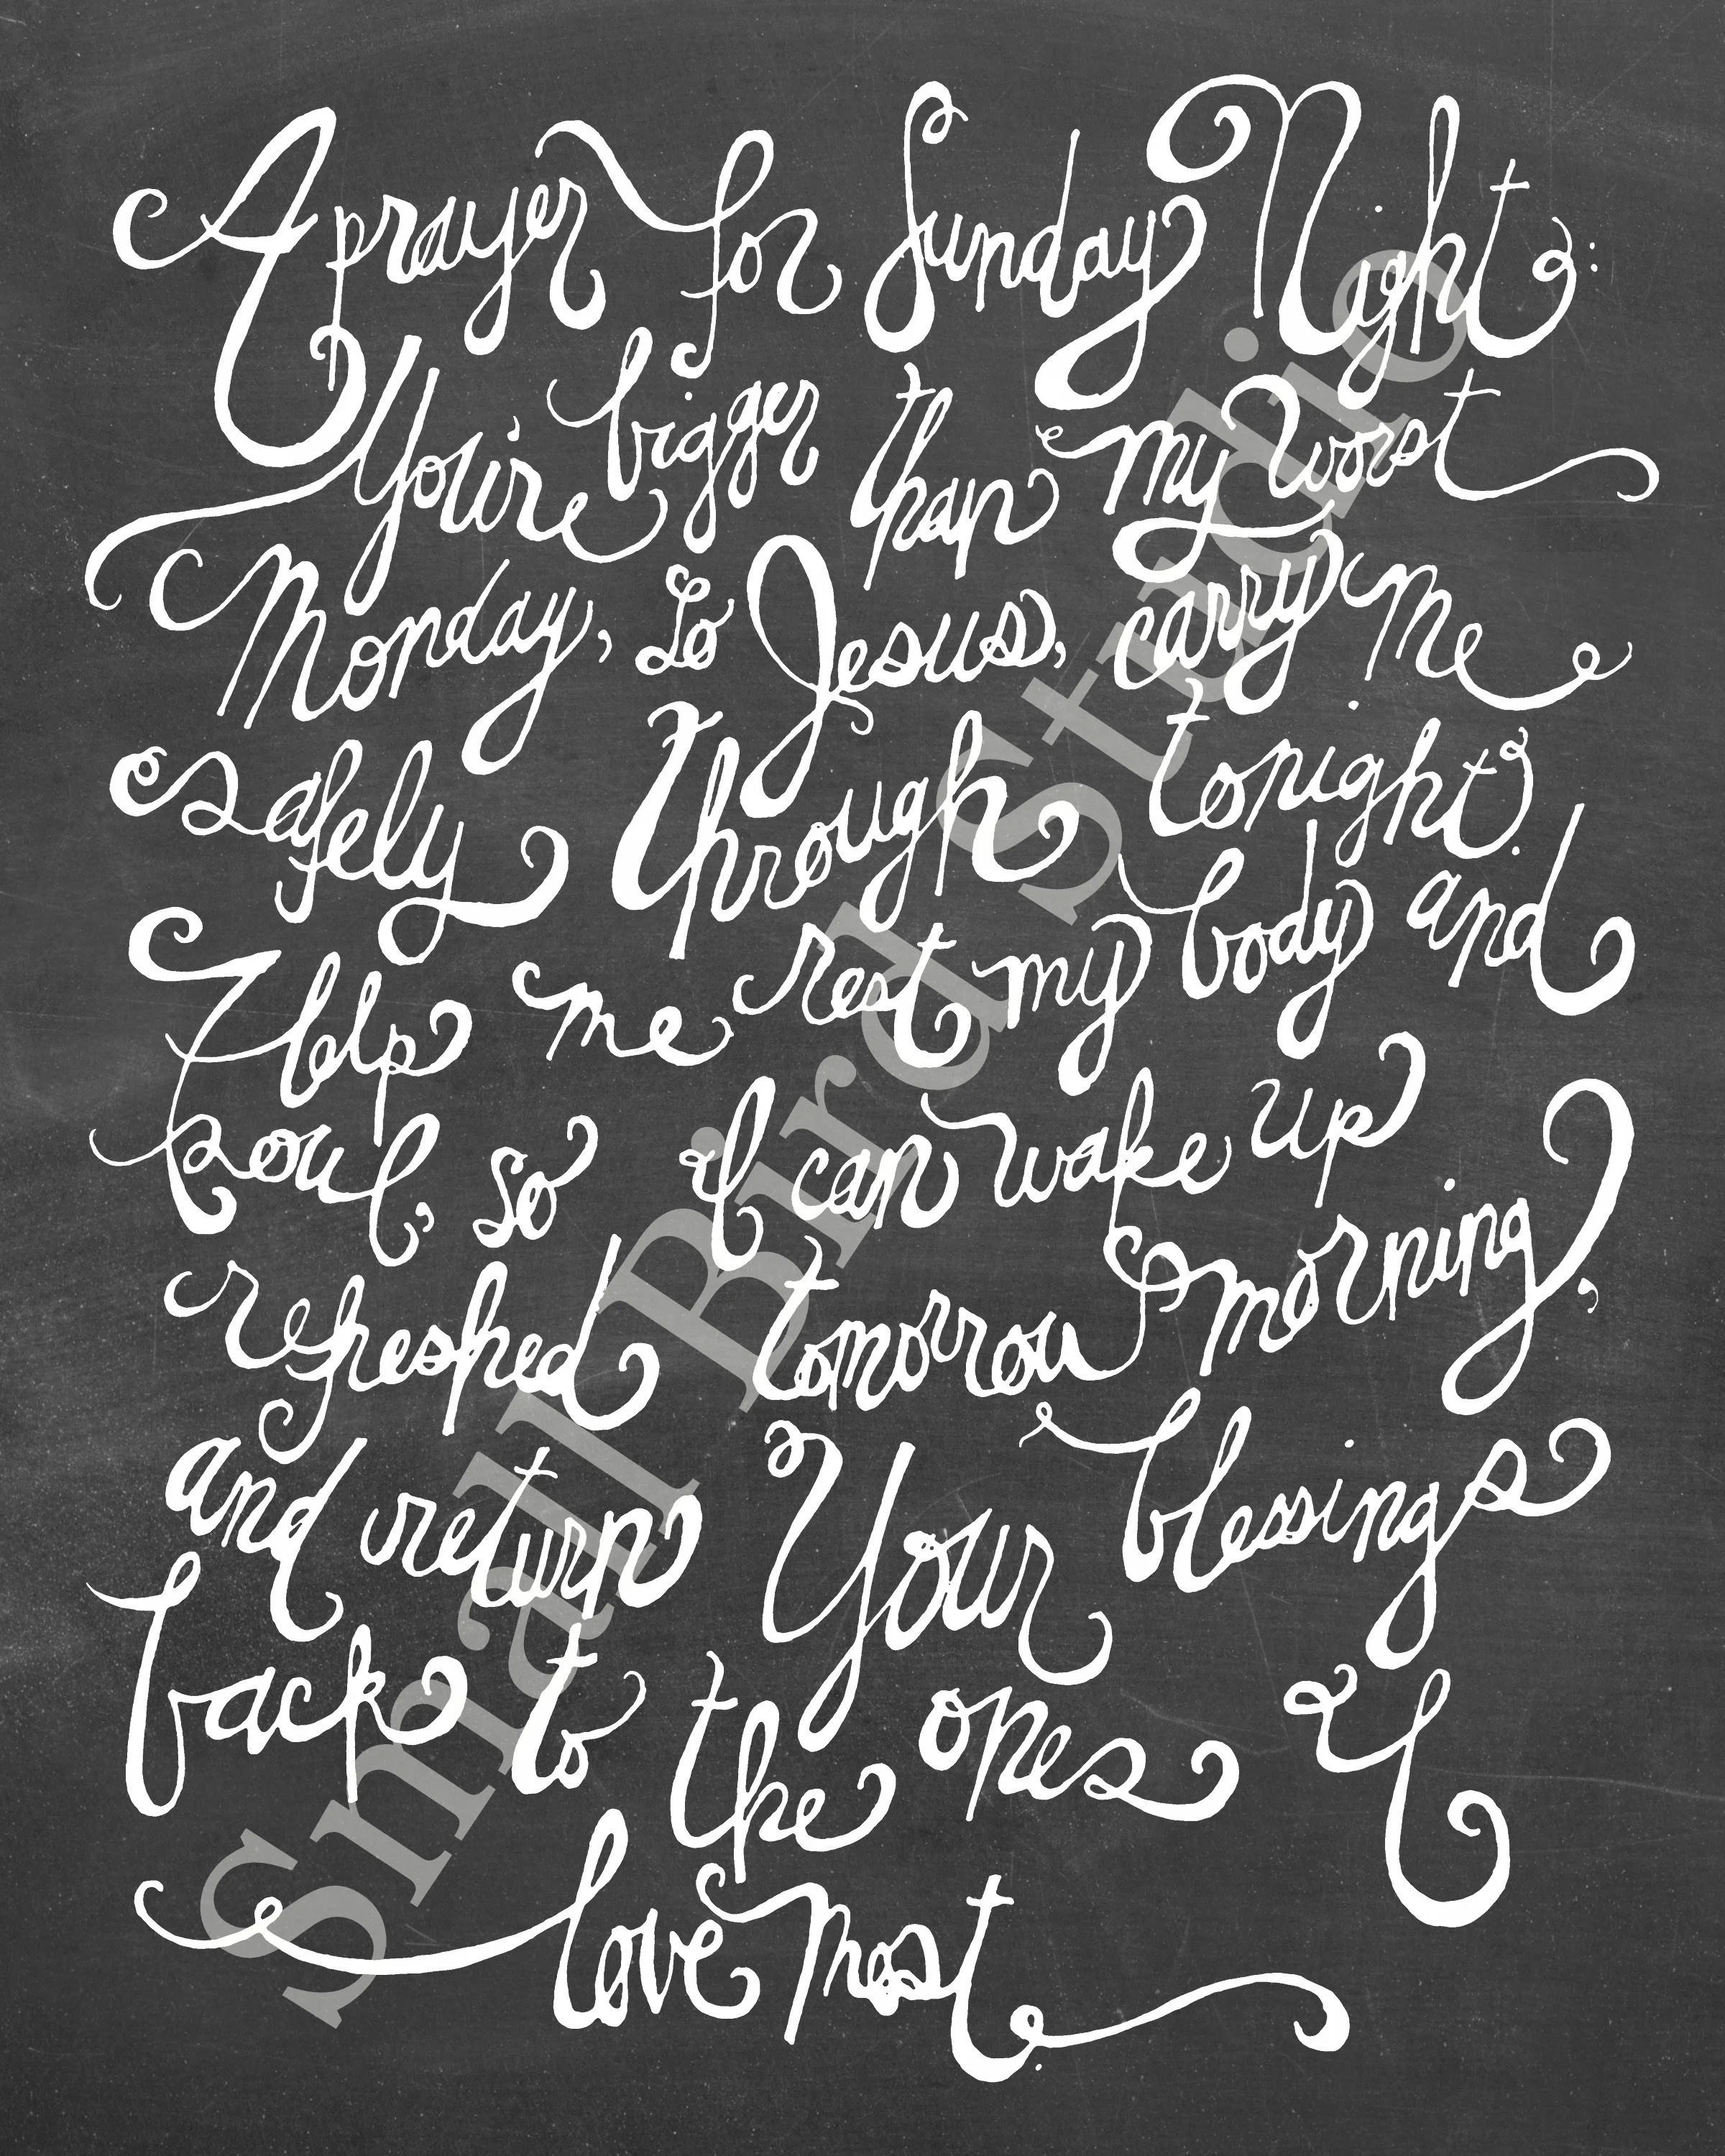 A prayer for Sunday Night:
You're bigger than my worst
Monday, So Jesus, carry me
safely through tonight.
Help me rest my body and
soul, so I can wake up
refreshed tomorrow morning,
and return Your blessings
back to the ones I
love most.
Small Bird Studio